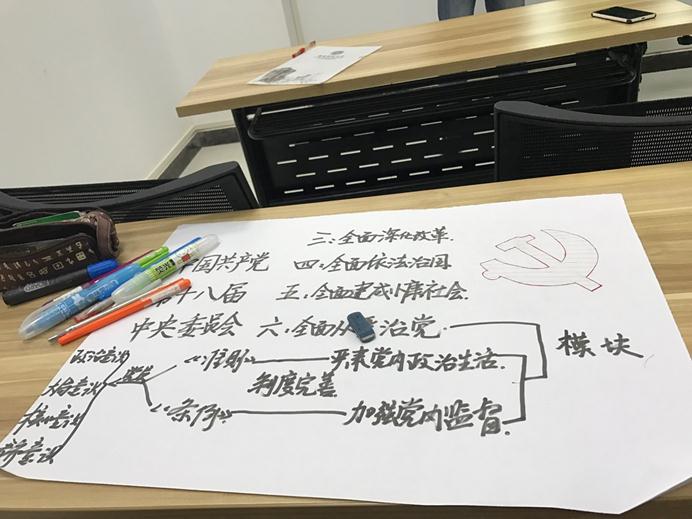 三:全面深化改革.
国共产党 四:全面依法治国
十八届 五:全面建成小康社会.
中央委员会 六:全面从严治党
模块
政治意识
《准则》 严肃党内政治生活.
大局意识
制度完善
核心意识
《条例》 加强党内监督.
看齐意识